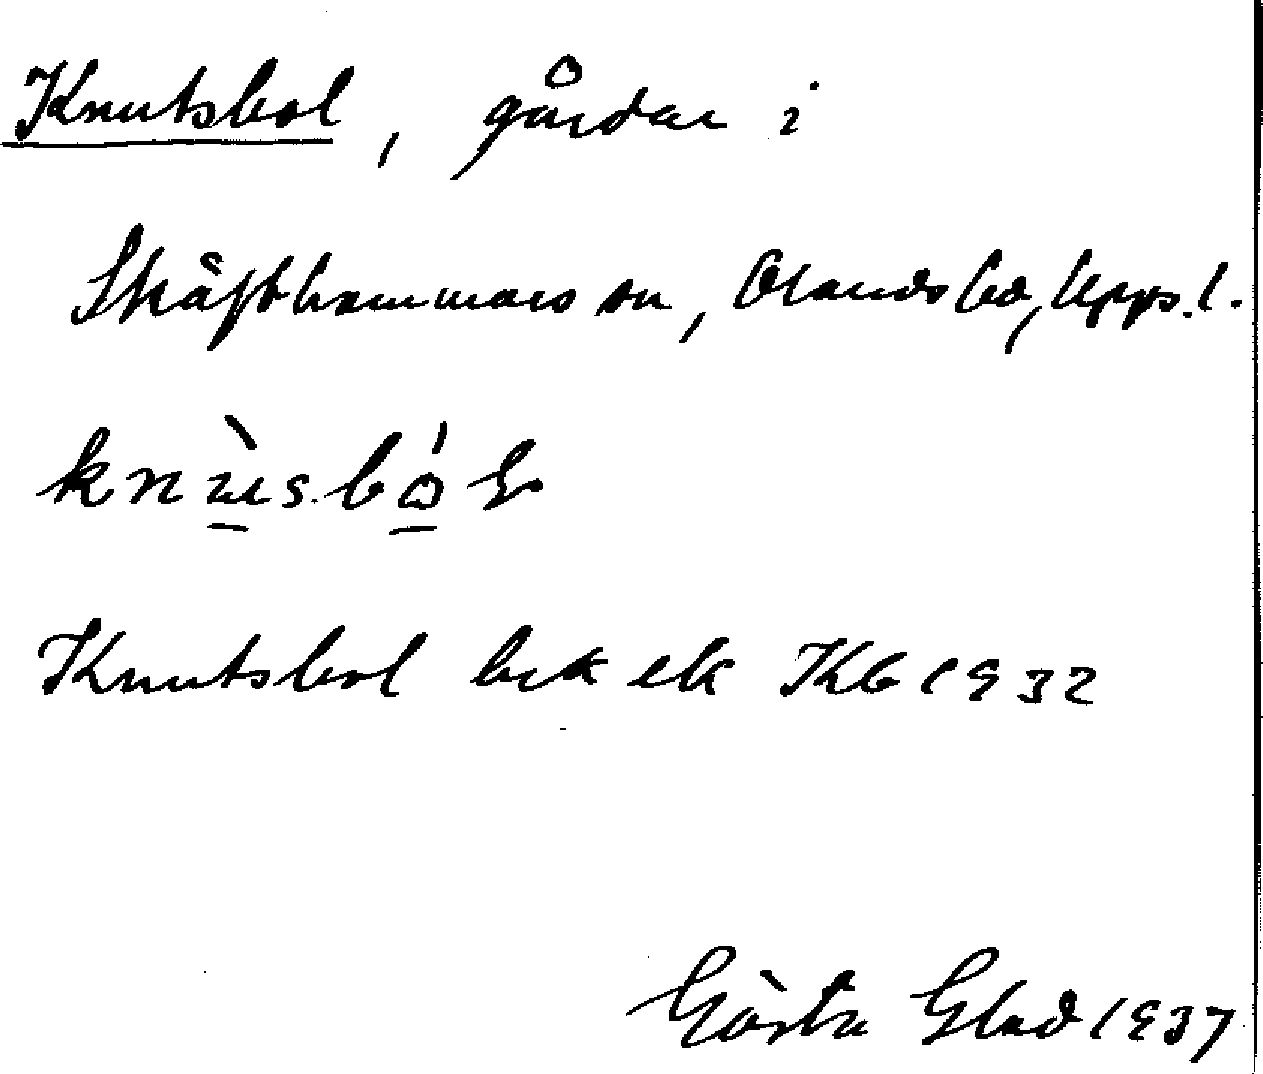 Knutsbol, gårdar i
Skäfthammars sn, Olands hd, Uppl.
Knutsbol bsk ek Kb 1932
Gösta Glad 1937